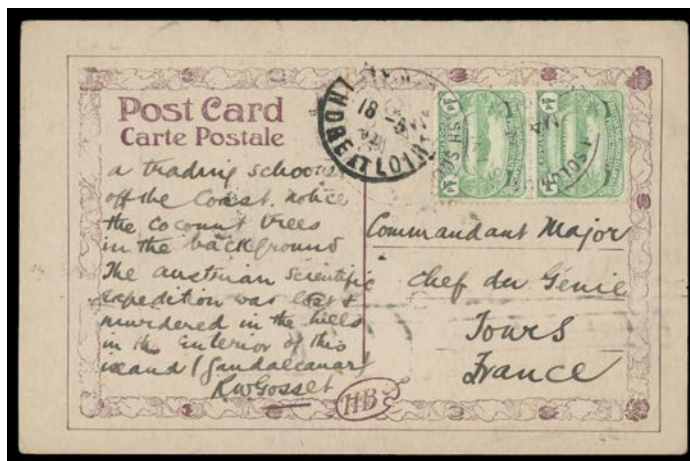 Post Card
Carte Postale
a trading schooner
off the Coast. notice
the Coconut trees
in the background
The Austrian Scientific
expedition was lost &
murdered in the hills
in the interior of this
island (Guadalcanar)
RWGosset
Commandant Major
Chef du Génie
Tours
France
INDRE ET LOIRE
18 -5
HB